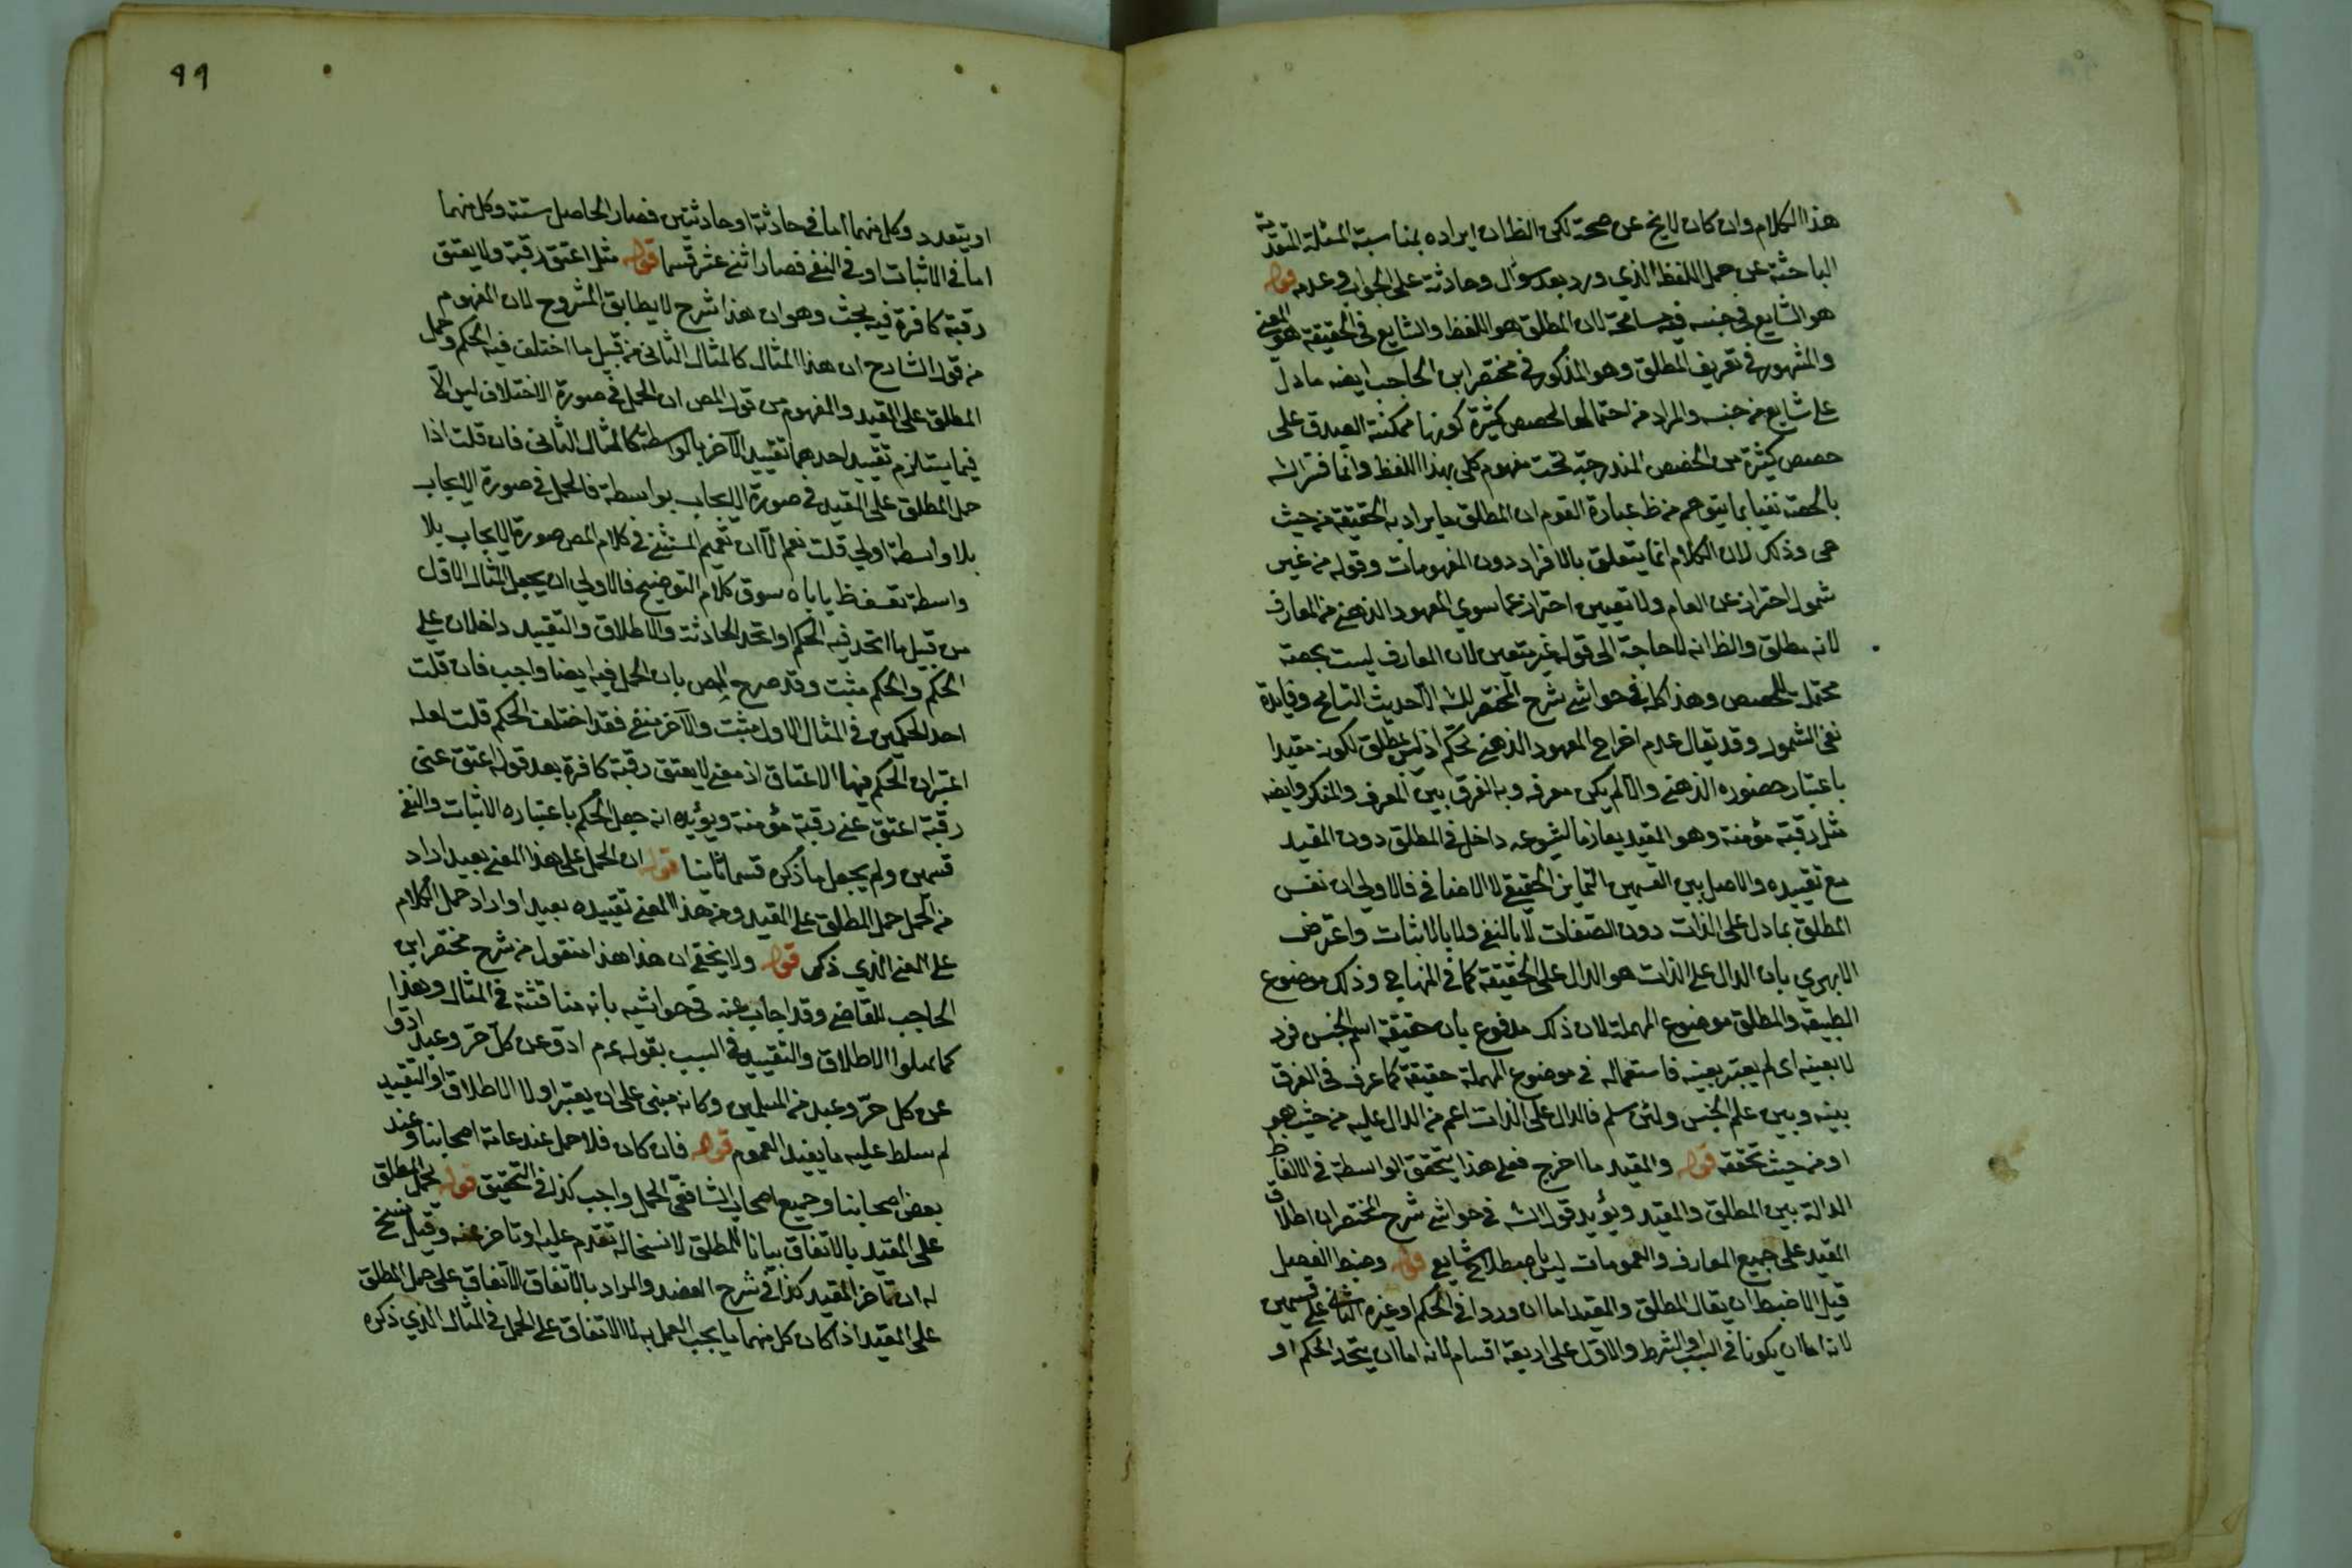 هذا الكلام وان كان لايخ عن صحة لكن الظ ان ايراده بمناسبة المسئلة المتقدمة
الباحثة عن حمل اللفظ الذي ورد بعد سؤال وحادثة على الجواب وعدمه قوله
هو الشايع في جنسه فيه مسامحة لان المطلق هو اللفظ والشايع في الحقيقة هو المعنى
والمشهور في تعريف المطلق وهو المذكور في مختصر ابن الحاجب ايضه ما دل
على شايع من جنسه والمراد من احتمالها لحصص كثيرة كونها ممكنة الصدق على
حصص كثيرة من الحصص المندرجة تحت مفهوم كلى بهذا اللفظ وانما فسر الشه
بالحصة نفيا بما يتوهم من ظ عبارة القوم ان المطلق ما يراد به الحقيقة من حيث
هى وذلك لان الكلام انما يتعلق بالافراد دون المفهومات وقوله من غير
شمول احتراز عن العام ولا تعيين احتراز عما سوى المعهود الذهنى من المعارف
لانه مطلق والظ انه لا حاجة الى قوله غير متعين لان المعارف ليست بحصة
محتملة للحصص وهذا كله في حواشى شرح المختصر للشه الا حديث التسامح وفايدة
نفى الشمول وقد يقال عدم اخراج المعهود الذهنى تحكم اذ ليس بمطلق لكونه مقيدا
باعتبار حضوره الذهنى والا لم يكن معرفه وبه الفرق بين المعرف والمنكر وايضه
مثل رقبة مؤمنة وهو المقيد بعازما لشيوعه داخل في المطلق دون المقيد
مع تقييده والاصل بين القسمين التمايز الحقيقى لا الاضافى فالاولى ان نفس
المطلق بما دل على الذات دون الصفات لا بالنفى ولا بالاثبات واعترض
الابهرى بان الدال على الذات هو الدال على الحقيقة كما في المنهاج وذلك موضوع
الطبيعة والمطلق موضوع المهملة لان ذلك مدفوع بان حقيقة اسم الجنس فرد
لا بعينه اى لم يعتبر بعينه فاستعماله في موضوع المهملة حقيقة كما عرف في الفرق
بينه وبين علم الجنس ولئن سلم فالدال على الذات اعم من الدال عليه من حيث هو
او من حيث تحققه قوله والمقيد ما اخرج فعلى هذا يتحقق الواسطة في الالفاظ
الدالة بين المطلق والمقيد ويؤيد قول الشه في حواشى شرح المختصر ان اطلاق
المقيد على جميع المعارف والعمومات ليس باصطلاح شايع قوله وضبط الفصيل
قيل الاضبط ان يقال المطلق والمقيد اما ان وردوا في الحكم او غيره الثانى على قسمين
لانه اما ان يكونا في السبب او الشرط والاول على اربعة اقسام لانه اما ان يتحد الحكم او
٩٩
او يتعدد وكل منهما اما في حادثة او حادثتين فصار الحاصل ستة وكل منهما
اما في الاثبات او في النفى فصار اثنى عشر قسما قوله مثل اعتق رقبة ولا يعتق
رقبة كافرة فيه بحث وهو ان هذا شرح لا يطابق المشروح لان المفهوم
من قول الشارح ان هذا المثال كالمثال الثانى من قبيل ما اختلف فيه الحكم وحمل
المطلق على المقيد والمفهوم من قول المص ان الحمل في صورة الاختلاف ليس الا
فيما يستلزم تقييد احدهما تقييد الآخر بالواسطة كالمثال الثانى فان قلت اذا
حمل المطلق على المقيد في صورة الايجاب بواسطة فالحمل في صورة الايجاب
بلا واسطة اولى قلت نعم الا ان تعميم المستثنى في كلام المص صورة الايجاب بلا
واسطة تعسف ظ ياباه سوق كلام التوضيح فالاولى ان يجعل المثال الاول
من قبيل ما اتحد فيه الحكم واتحد الحادثة والاطلاق والتقييد داخلان على
الحكم والحكم مثبت وقد صرح المص بان الحمل فيه ايضا واجب فان قلت
احد الحكمين في المثال الاول مثبت والآخر منفى فقد اختلف الحكم قلت لعله
اعتبر ان الحكم فيها الاعتاق اذ معنى لا يعتق رقبة كافرة بعد قوله اعتق عنى
رقبة اعتق عنى رقبة مؤمنة ويؤيده انه جعل الحكم باعتباره الاثبات والنفى
قسمين ولم يجعل ما ذكره قسما ثالثا قوله ان الحمل على هذا المعنى بعيد اراد
من الحمل حمل المطلق على المقيد ومن هذا المعنى تقييده بعيد او اراد حمل الكلام
على المعنى الذي ذكر قوله ولا يخفى ان هذا هذا منقول من شرح مختصر ابن
الحاجب للقاضى وقد اجاب عنه في حواشيه بانه مناقشة في المثال وهذا
كما مثلوا الاطلاق والتقييد في السبب بقوله عم ادوا عن كل حر وعبد ادوا
عن كل حر وعبد من المسلمين وكانه مبنى على ان يعتبر اولا الاطلاق او التقييد
لم سلط عليه ما يفيد العموم قوله فان كان فلا حمل عند عامة اصحابنا وعند
بعض اصحابنا وجميع اصحاب الشافعى الحمل واجب كذا في التحقيق قوله يحمل المطلق
على المقيد بالاتفاق بيانا للمطلق لا نسخا له تقدم عليه او تاخر عنه وقيل نسخ
له ان تاخر المقيد كذا في شرح العضد والمراد بالاتفاق الاتفاق على حمل المطلق
على المقيد اذا كان كل منهما ما يجب العمل به لا الاتفاق على الحمل في المثال الذي ذكره